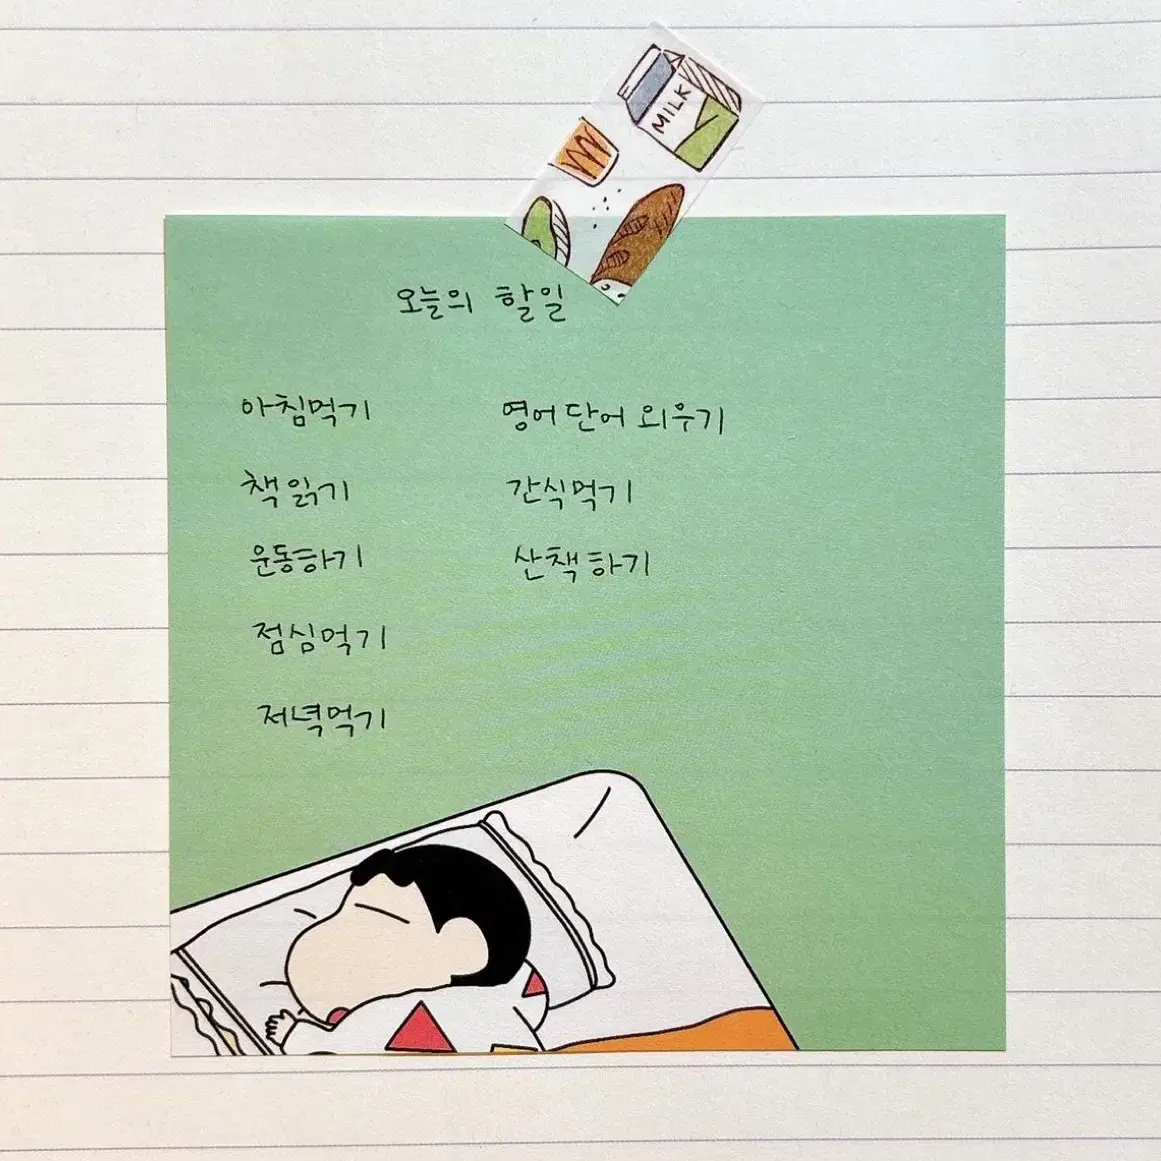 MILK
오늘의 할일
아침먹기
책 읽기
운동하기
점심먹기
저녁먹기
영어단어 외우기
간식먹기
산책하기